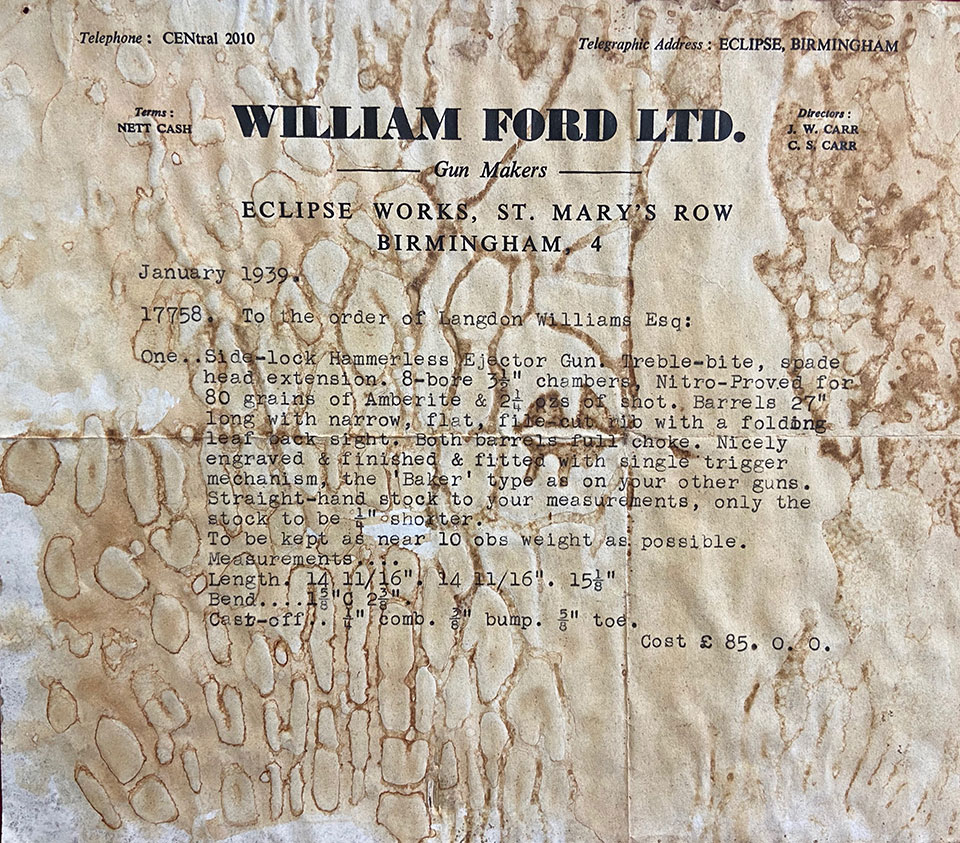 Telephone : CENtral 2010
Telegraphic Address : ECLIPSE, BIRMINGHAM
Terms :
NETT CASH
WILLIAM FORD LTD.
Directors :
J. W. CARR
C. S. CARR
Gun Makers
ECLIPSE WORKS, ST. MARY'S ROW
BIRMINGHAM, 4
January 1939.
17758. To the order of Langdon Williams Esq:
One..Side-lock Hammerless Ejector Gun. Treble-bite, spade
head extension. 8-bore 3¼" chambers, Nitro-Proved for
80 grains of Amberite & 2¼ ozs of shot. Barrels 27"
long with narrow, flat, file-cut rib with a folding
leaf back sight. Both barrels full choke. Nicely
engraved & finished & fitted with single trigger
mechanism, the 'Baker' type as on your other guns.
Straight-hand stock to your measurements, only the
stock to be ¼" shorter.
To be kept as near 10 obs weight as possible.
Measurements....
Length. 14 11/16". 14 11/16". 15⅛"
Bend....1⅝" 2⅜".
Cast-off.. ¼" comb. ⅜" bump. ⅝" toe.
Cost £ 85. 0. 0.